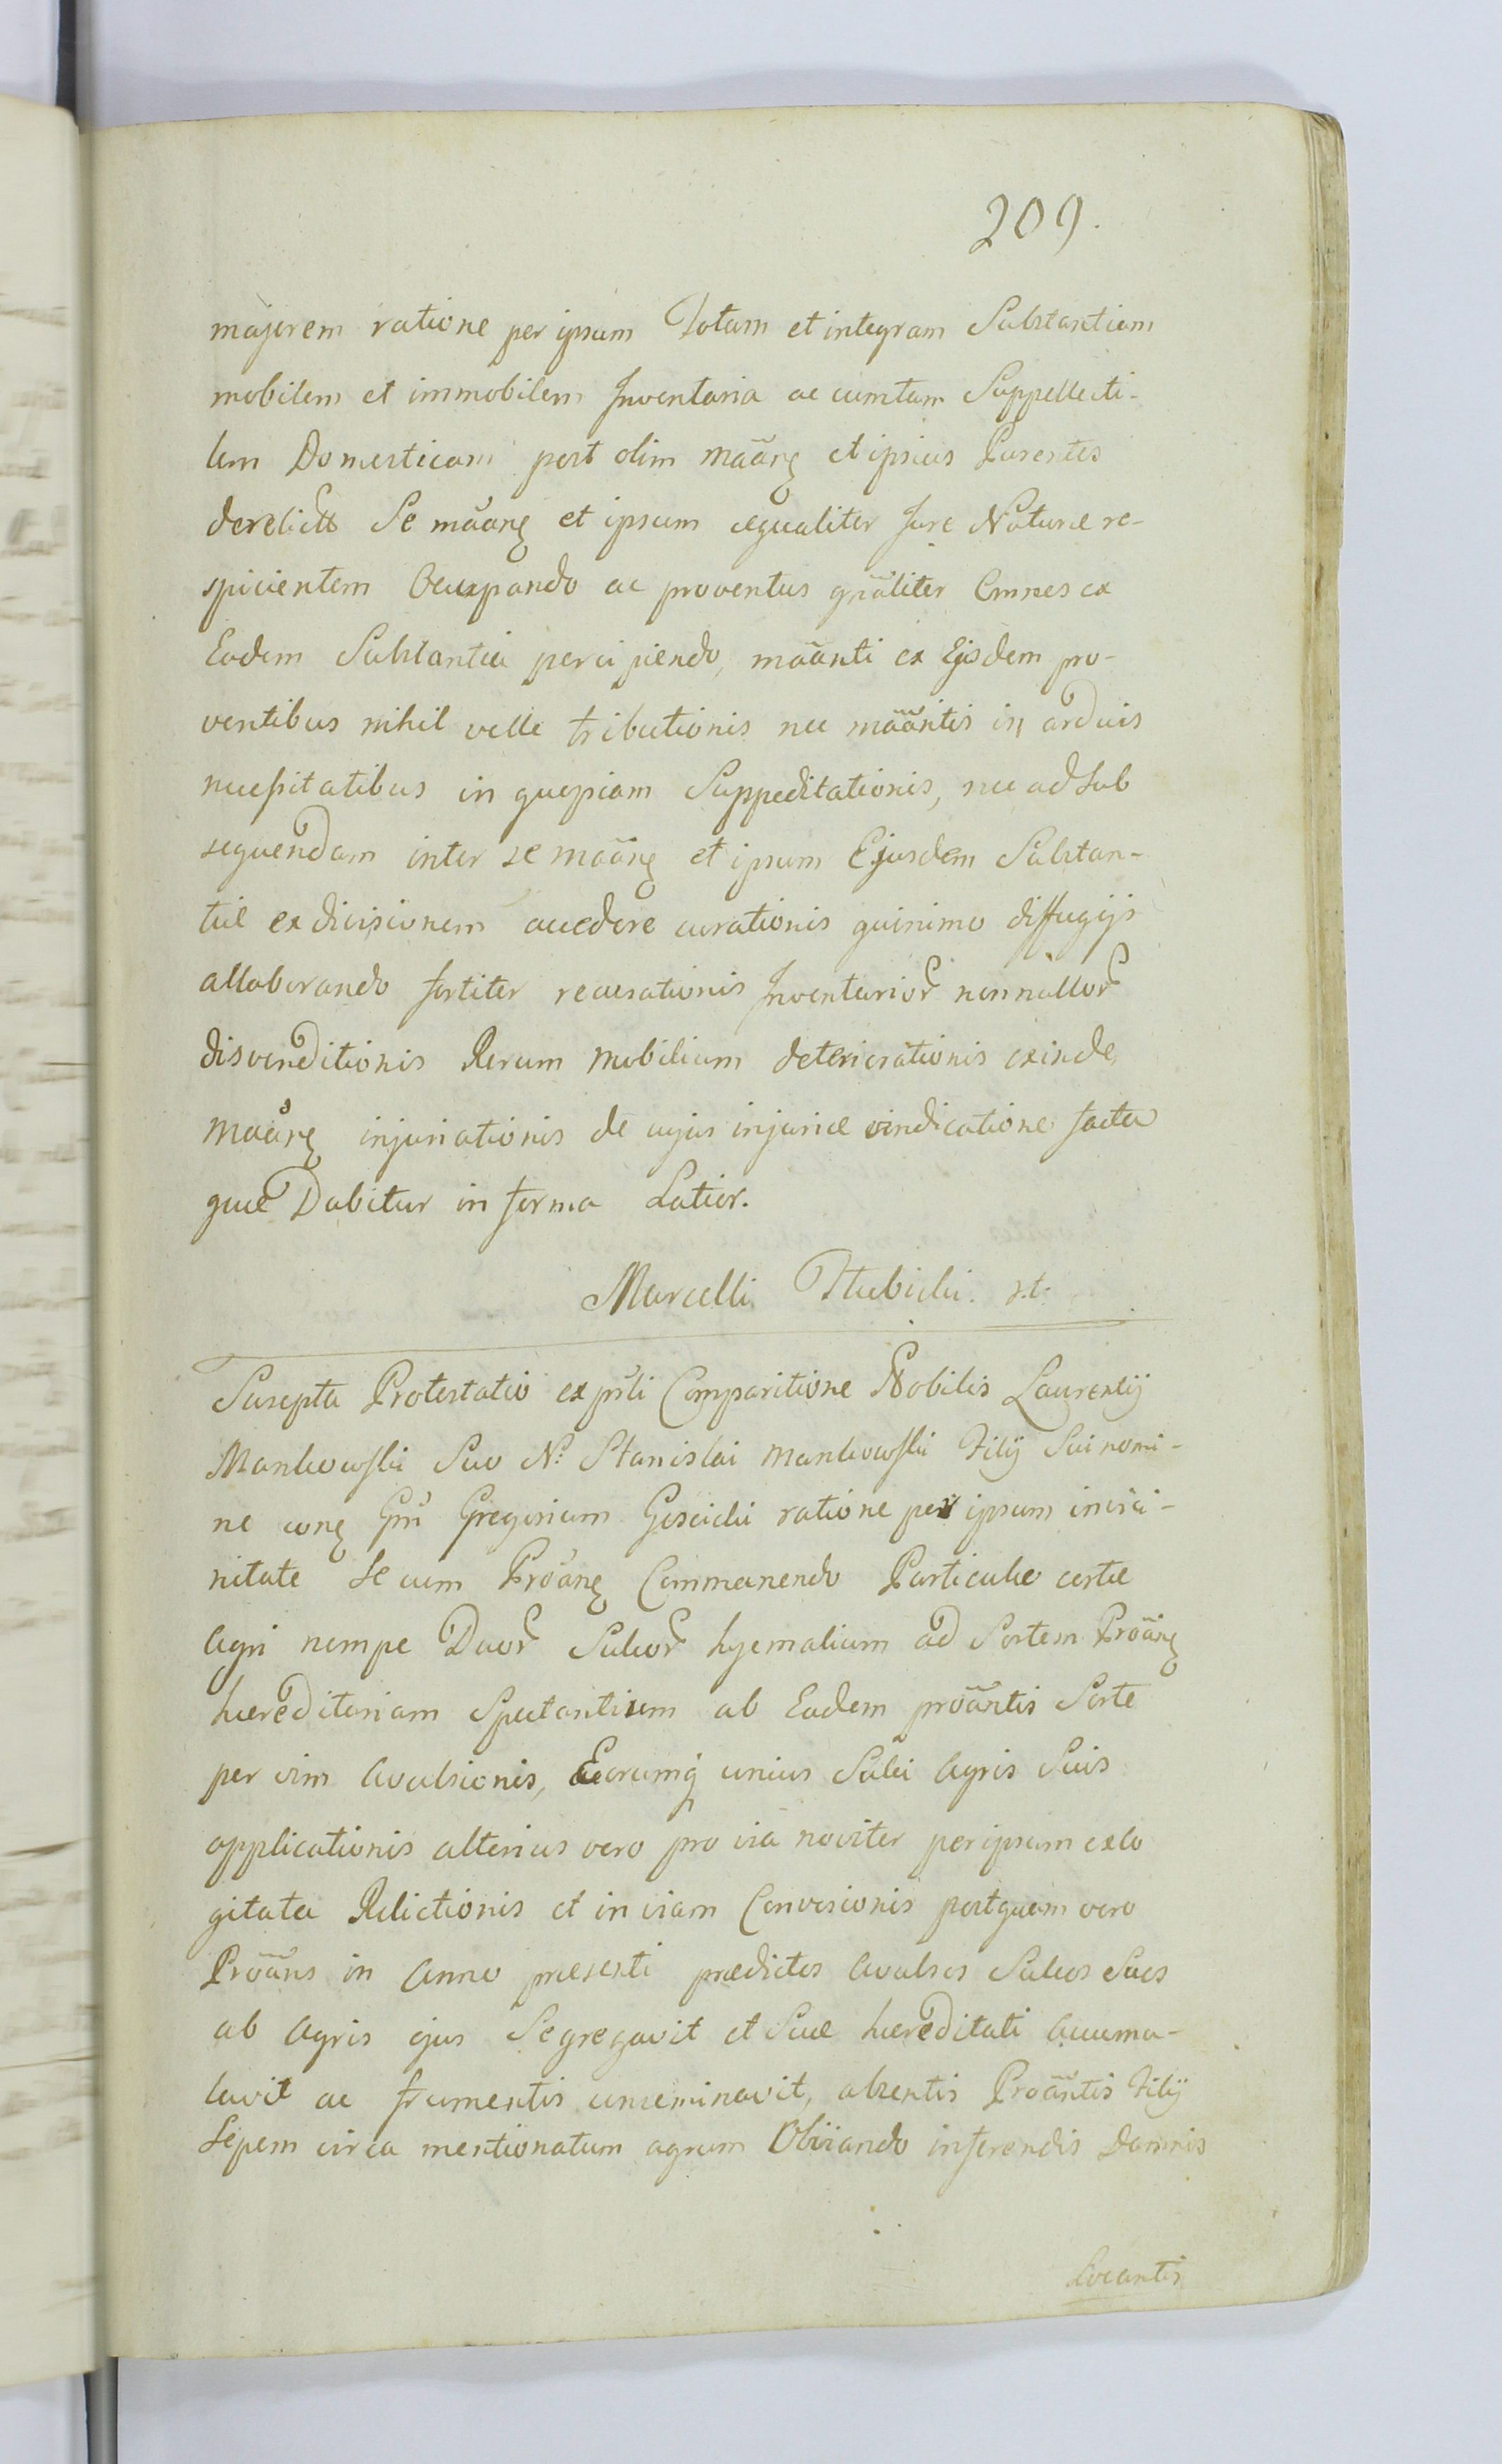 209.
majorem ratione per ipsum Totam et integram Substantiam
mobilem et immobilem Inventaria ac cunctam Suppellecti-
lem Domesticam post olim mãang et ipsius Parentes
derelictt Se mãang et ipsum æqualiter Jure Naturæ re-
spicientem Occupando ac proventus gnãliter Omnes ex
Eadem Substantia percipiendo, mãanti ex Ejsdem pro-
ventibus nihil velle tributionis nec mãantis in arduis
necessitatibus in quepiam Suppeditationis, nec ad Sub
sequendam inter se mãang et ipsum Ejusdem Substan-
tiæ exdivisionem accedere curationis quinimo diffugijs
allaborando fortiter recusationis Inventarior nonnullor
disvenditionis Rerum Mobilium deteriorationis exinde
Mãang injuriationis de cujus injuriæ vindicatione facta
quæ Dabitur in forma Latior.
Marcelli Hubicki. st.
Suscepta Protestatio ex prsti Comparitione Nobilis Laurentij
Mankowski Suo N: Stanislai Mankowski Filij Sui nomi-
ne cong Gm Gregorium ratione per ipsum in vici-
nitate Se cum Proãng Commanendo Particulæ certæ
Agri nempe Duor Sulcor hyemalium ad Sortem Proãng
hæreditariam Spectantium ab Eadem proãntis Sorte
per vim Avulsionis, Eorumq unius Sulci Agris Suis
applicationis alterius vero pro via noviter per ipsum exco
gitata Relictionis et in viam Conversionis postquam vero
Proãns in Anno præsenti prædictos Avulsos Sulcos Suos
ab Agris ejus Segregavit et Suæ hæreditati Accumu-
lavit ac frumentis conseminavit, absentis Proãntis Filij
Sepem circa mentionatum agrum Obviando inferendis Damnis
Locantis